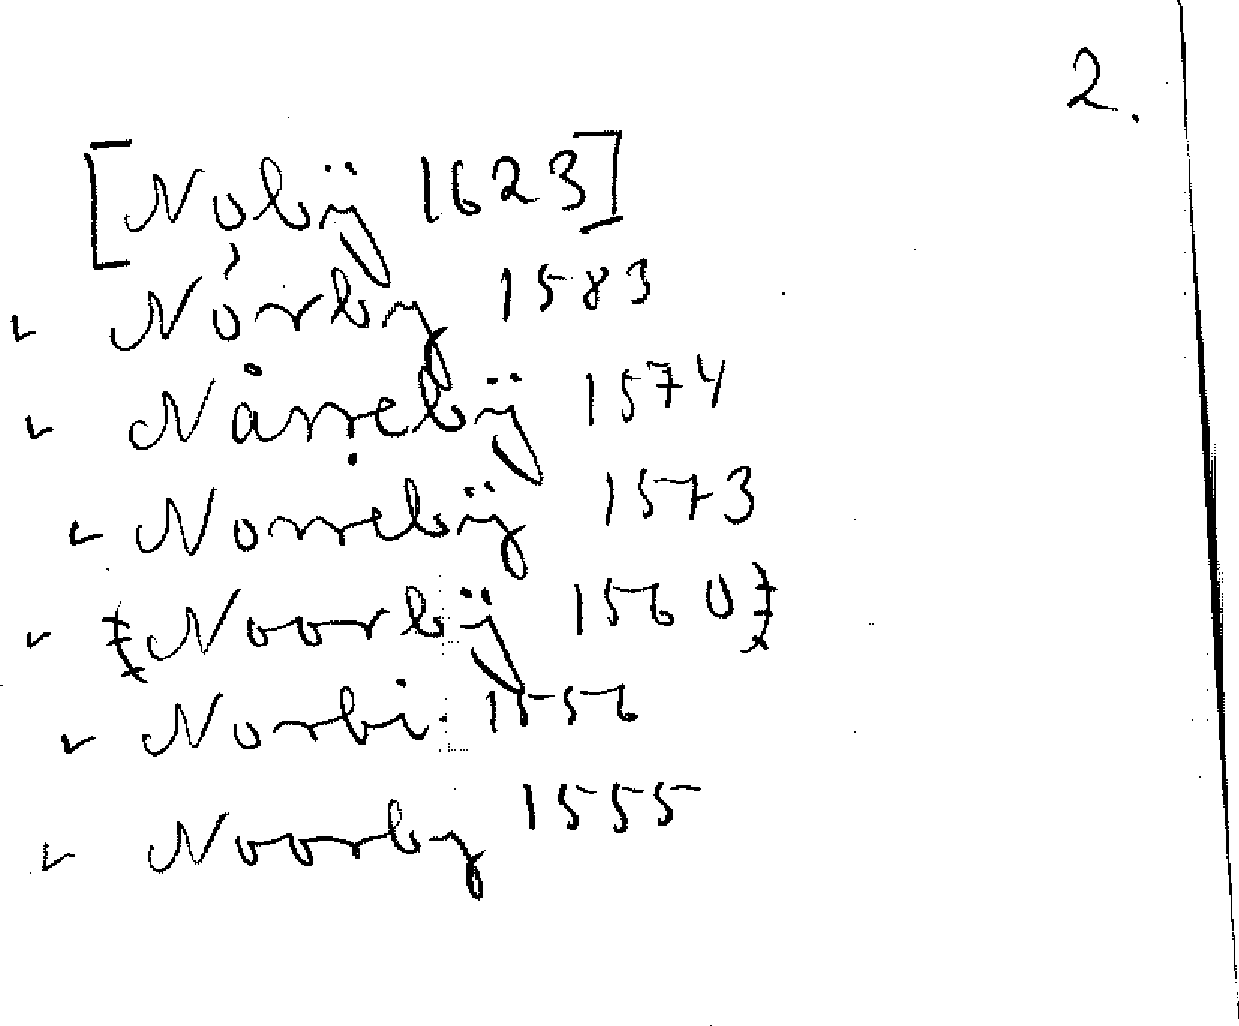 2.
[Nobÿ 1623]
✓ Nórby 1583
✓ Nårrebÿ 1574
✓ Norrebÿ 1573
✓ Noorbÿ 1560
✓ Norbi 1556
✓ Noorby 1555